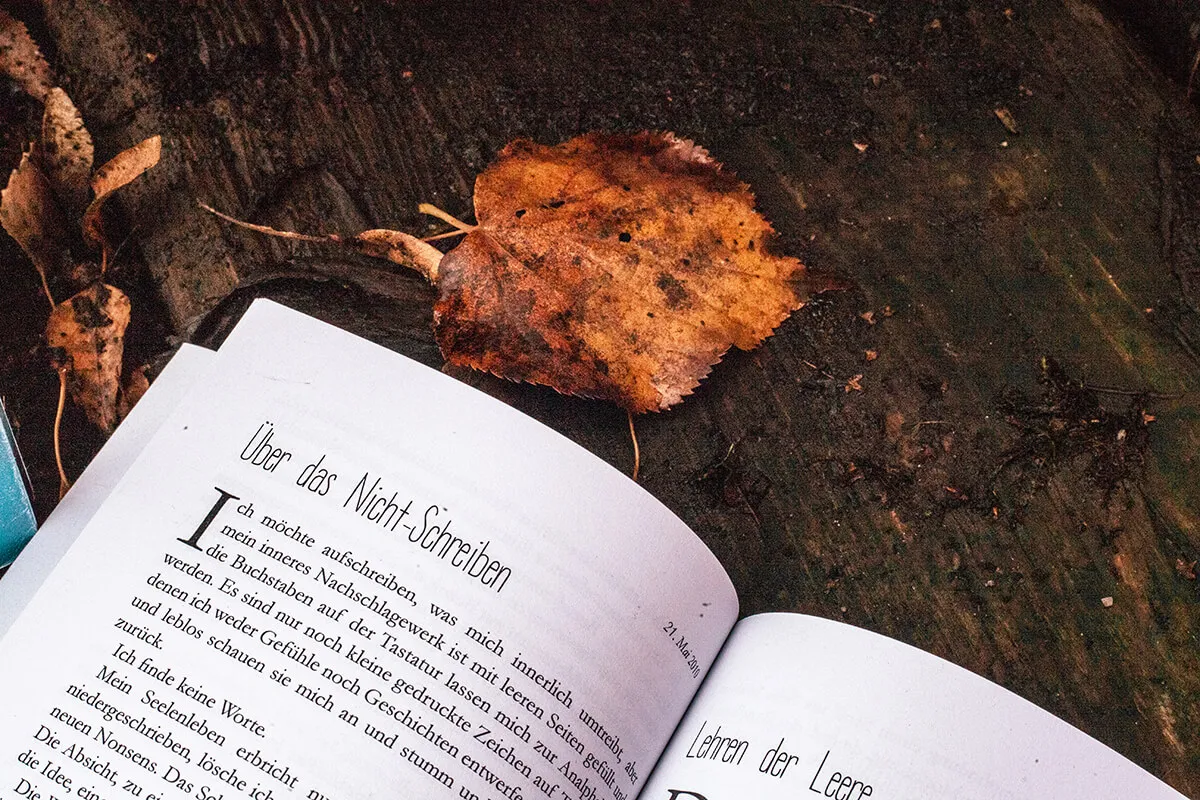 Über das Nicht-Schreiben
21. Mai 2010
Ich möchte aufschreiben, was mich innerlich umtreibt, aber
mein inneres Nachschlagewerk ist mit leeren Seiten gefüllt und
die Buchstaben auf der Tastatur lassen mich zur
werden. Es sind nur noch kleine gedruckte Zeichen auf
denen ich weder Gefühle noch Geschichten
und leblos schauen sie mich an und stumm
zurück.
Ich finde keine Worte.
Mein Seelenleben erbricht
niedergeschrieben, lösche ich
neuen Nonsens. Das
Die Absicht, zu
die Idee,
Die
Lehren der Leere